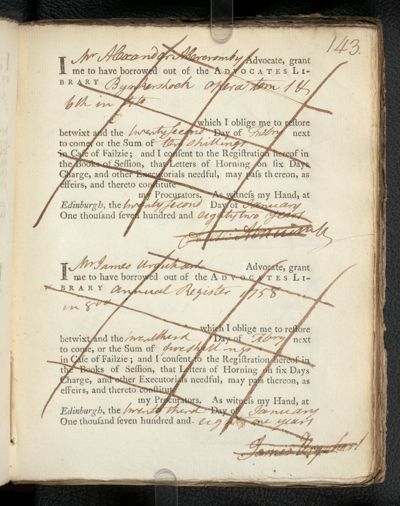 143.
I Mr Alexander Abercromby Advocate, grant
me to have borrowed out of the ADVOCATES LI-
BRARY Bynkershoek opera tom 1 &
6th in 4to
which I oblige me to restore
betwixt and the twenty second Day of Febry next
to come, or the Sum of ten shillings
in Case of Failzie; and I consent to the Registration hereof in
the Books of Session, that Letters of Horning on six Days
Charge, and other Executorials needful, may pass thereon, as
effeirs, and thereto constitute
my Procurators. As witness my Hand, at
Edinburgh, the twenty second Day of January
One thousand seven hundred and eighty two years
I Mr James Urquhart Advocate, grant
me to have borrowed out of the ADVOCATES LI-
BRARY Annual Register 1758
in 8vo
which I oblige me to restore
betwixt and the Day of Febry next
to come, or the Sum of five shillings
in Case of Failzie; and I consent to the Registration hereof in
the Books of Session, that Letters of Horning on six Days
Charge, and other Executorials needful, may pass thereon, as
effeirs, and thereto constitute
my Procurators. As witness my Hand, at
Edinburgh, the Day of January
One thousand seven hundred and years
James Urquhart